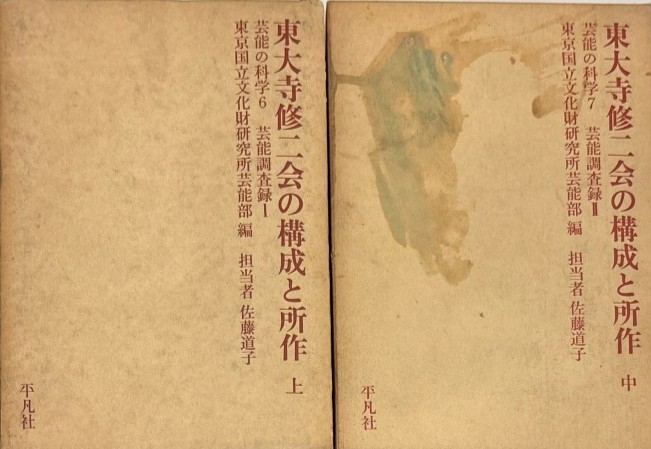 東大寺修二会の構成と所作 上
芸能の科学6 芸能調査録Ⅰ
東京国立文化財研究所芸能部 編 担当者 佐藤道子
平凡社
東大寺修二会の構成と所作 中
芸能の科学7 芸能調査録Ⅱ
東京国立文化財研究所芸能部 編 担当者 佐藤道子
平凡社